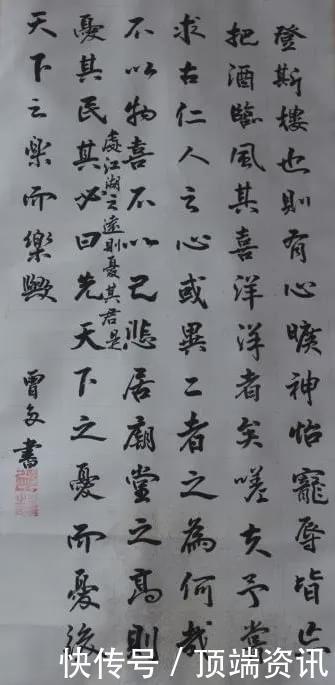 登斯樓也則有心曠神怡寵辱皆忘
把酒臨風其喜洋洋者矣嗟夫予嘗
求古仁人之心或異二者之為何哉
不以物喜不以己悲居廟堂之高則
處江湖之遠則憂其君是
憂其民其必曰先天下之憂而憂後
天下之樂而樂歟
書
快传号 / 顶端新闻